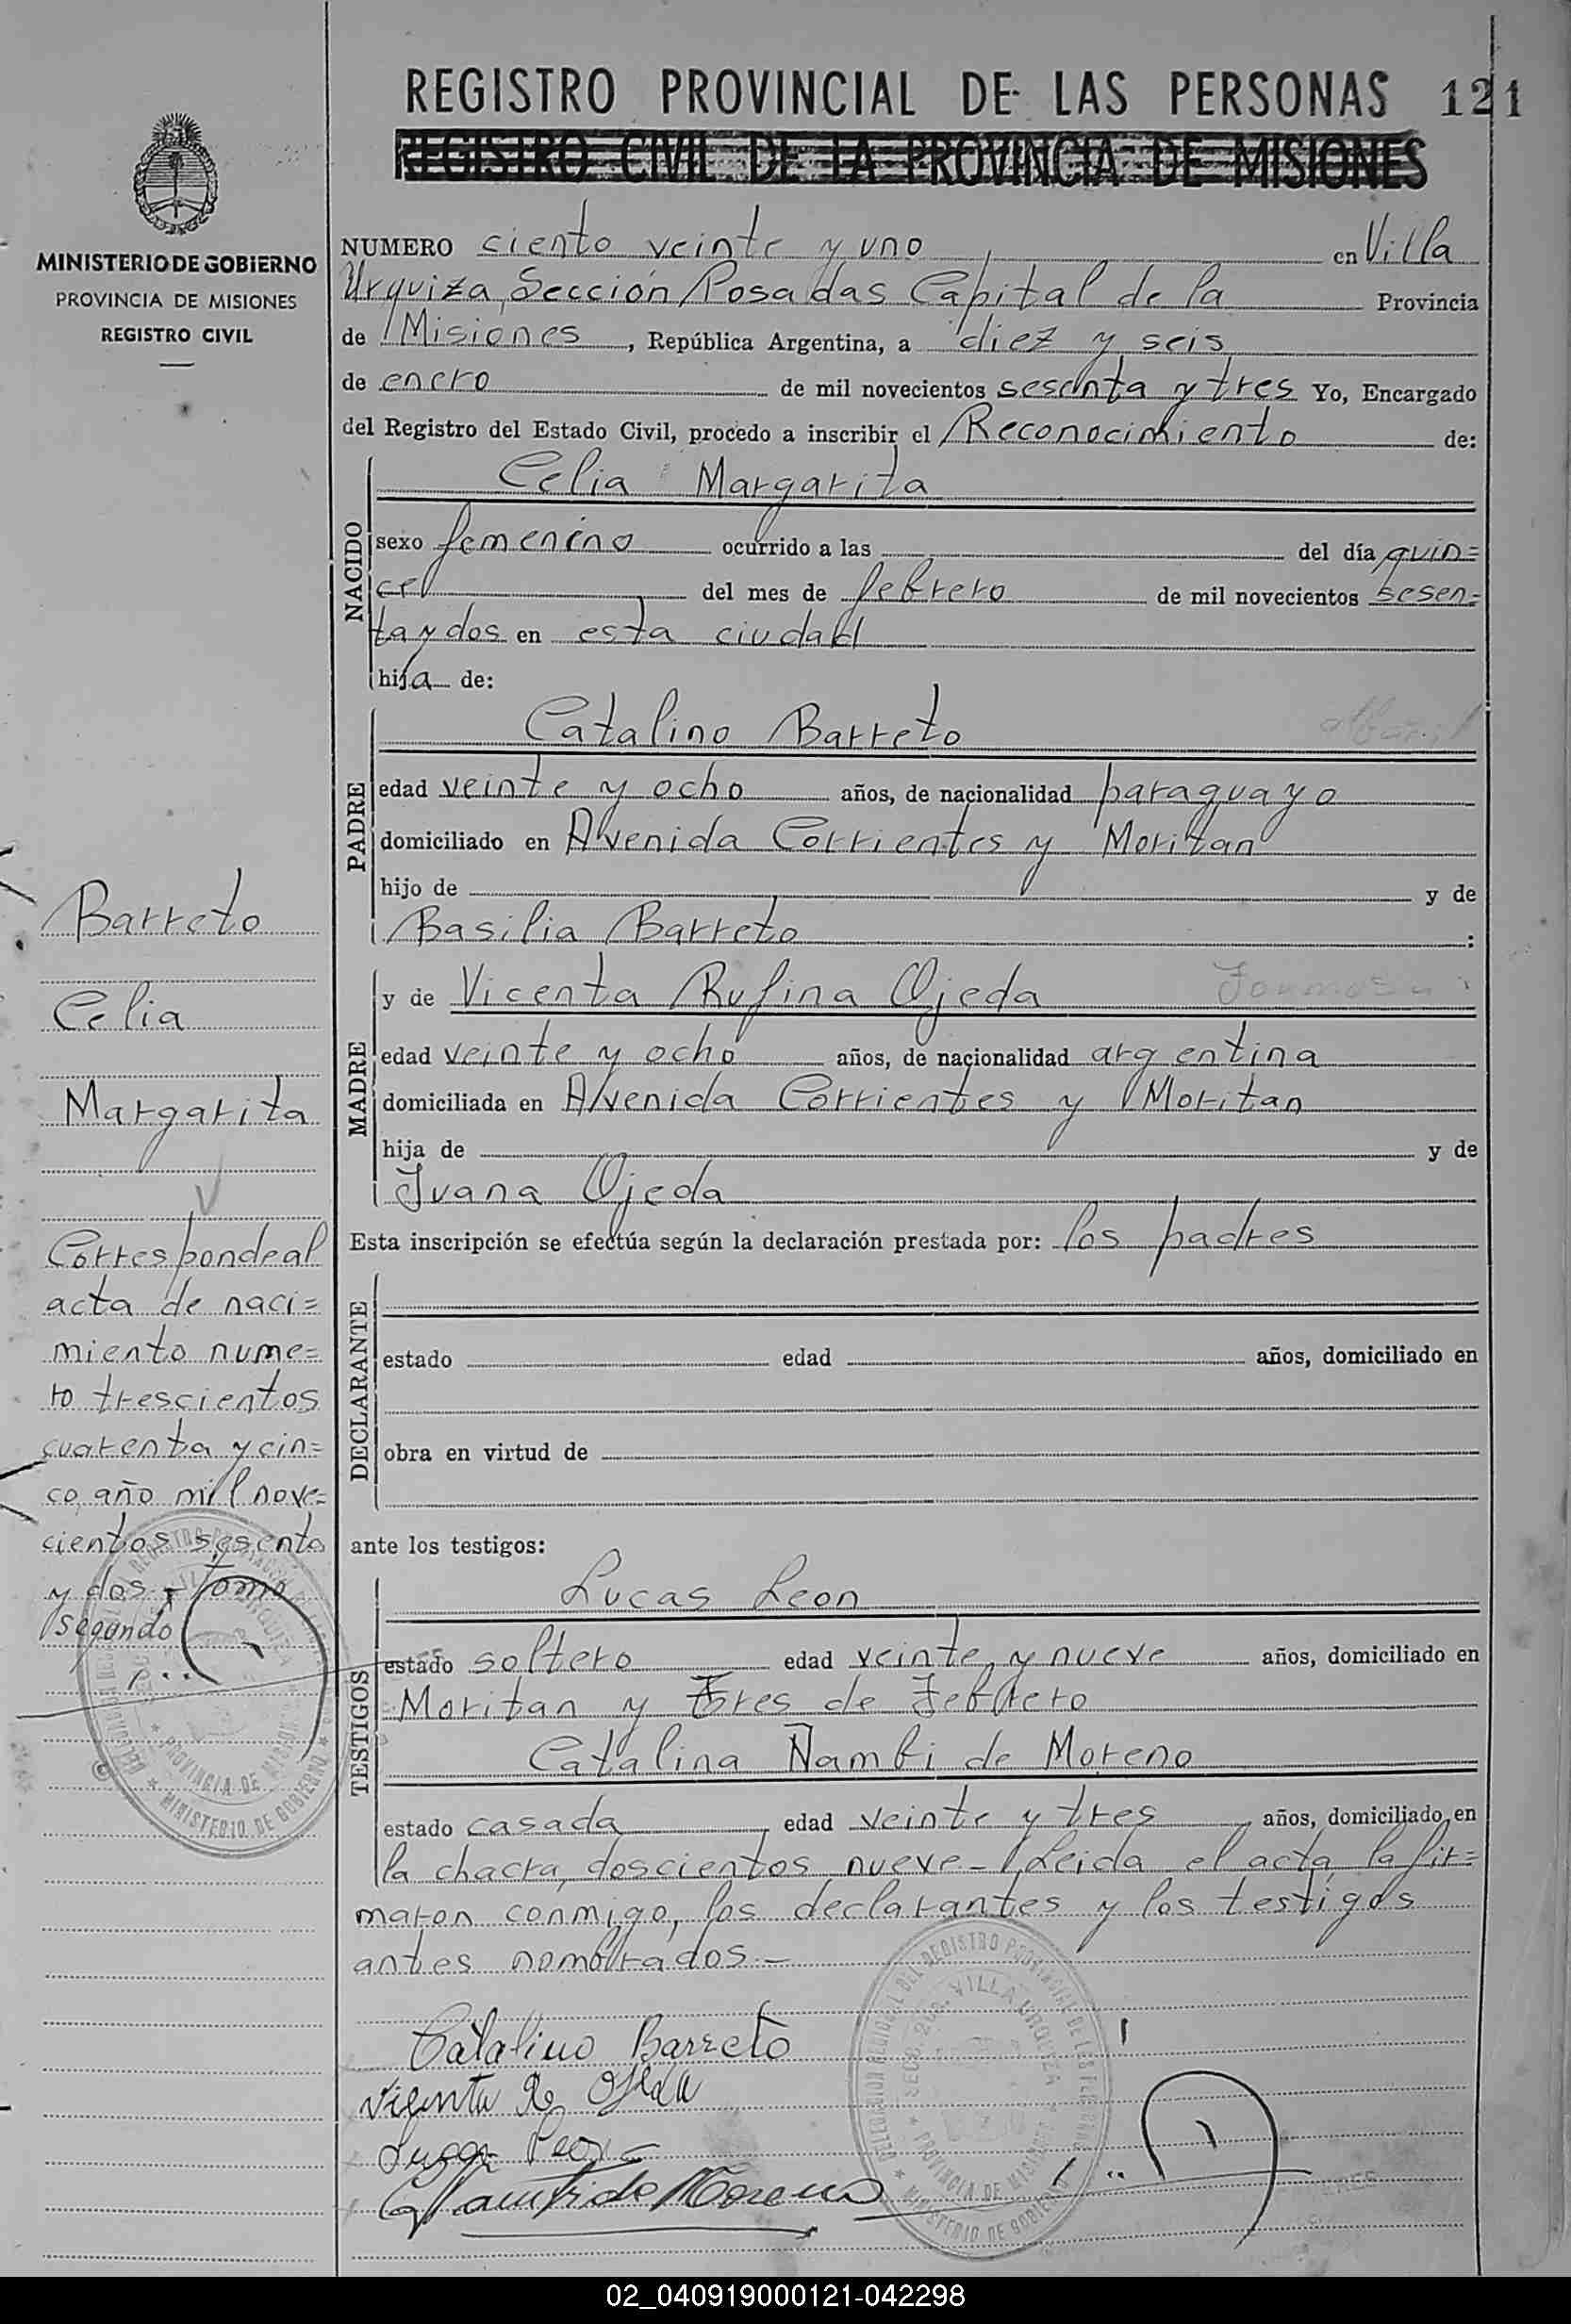 REGISTRO PROVINCIAL DE LAS PERSONAS 121
REGISTRO CIVIL DE LA PROVINCIA DE MISIONES
MINISTERIO DE GOBIERNO
PROVINCIA DE MISIONES
REGISTRO CIVIL
NUMERO ciento veinte y uno en Villa
Urquiza, Sección Posadas Capital de la Provincia
de Misiones, República Argentina, a diez y seis
de enero de mil novecientos sesenta y tres Yo, Encargado
del Registro del Estado Civil, procedo a inscribir el Reconocimiento de:
NACIDO
Celia Margarita
sexo femenino ocurrido a las del día quin=
ce del mes de febrero de mil novecientos sesen=
ta y dos en esta ciudad
hija de:
PADRE
Catalino Barreto albañil
edad veinte y ocho años, de nacionalidad paraguayo
domiciliado en Avenida Corrientes y Moritan
hijo de y de
Basilia Barreto :
MADRE
y de Vicenta Rufina Ojeda Formosa
edad veinte y ocho años, de nacionalidad argentina
domiciliada en Avenida Corrientes y Moritan
hija de y de
Juana Ojeda
Esta inscripción se efectúa según la declaración prestada por: los padres
DECLARANTE
estado edad años, domiciliado en
obra en virtud de
ante los testigos:
TESTIGOS
Lucas Leon
estado soltero edad veinte y nueve años, domiciliado en
Moritan y Tres de Febrero
Catalina Ñambi de Moreno
estado casada edad veinte y tres años, domiciliado en
la chacra, doscientos nueve- Leida el acta, la fir=
maron conmigo, los declarantes y los testigos
antes nombrados.-
Catalino Barreto
Vicenta R Ojeda
Lucas Leon
C Ñambi de Moreno
Barreto
Celia
Margarita
Corresponde al
acta de naci=
miento nume=
ro trescientos
cuarenta y cin=
co, año mil nove=
cientos sesenta
y dos - Tomo
segundo
DELEGACION DEL REGISTRO PROVINCIAL DE LAS PERSONAS
SECC. 2da. VILLA URQUIZA
PROVINCIA DE MISIONES
MINISTERIO DE GOBIERNO
02_040919000121-042298